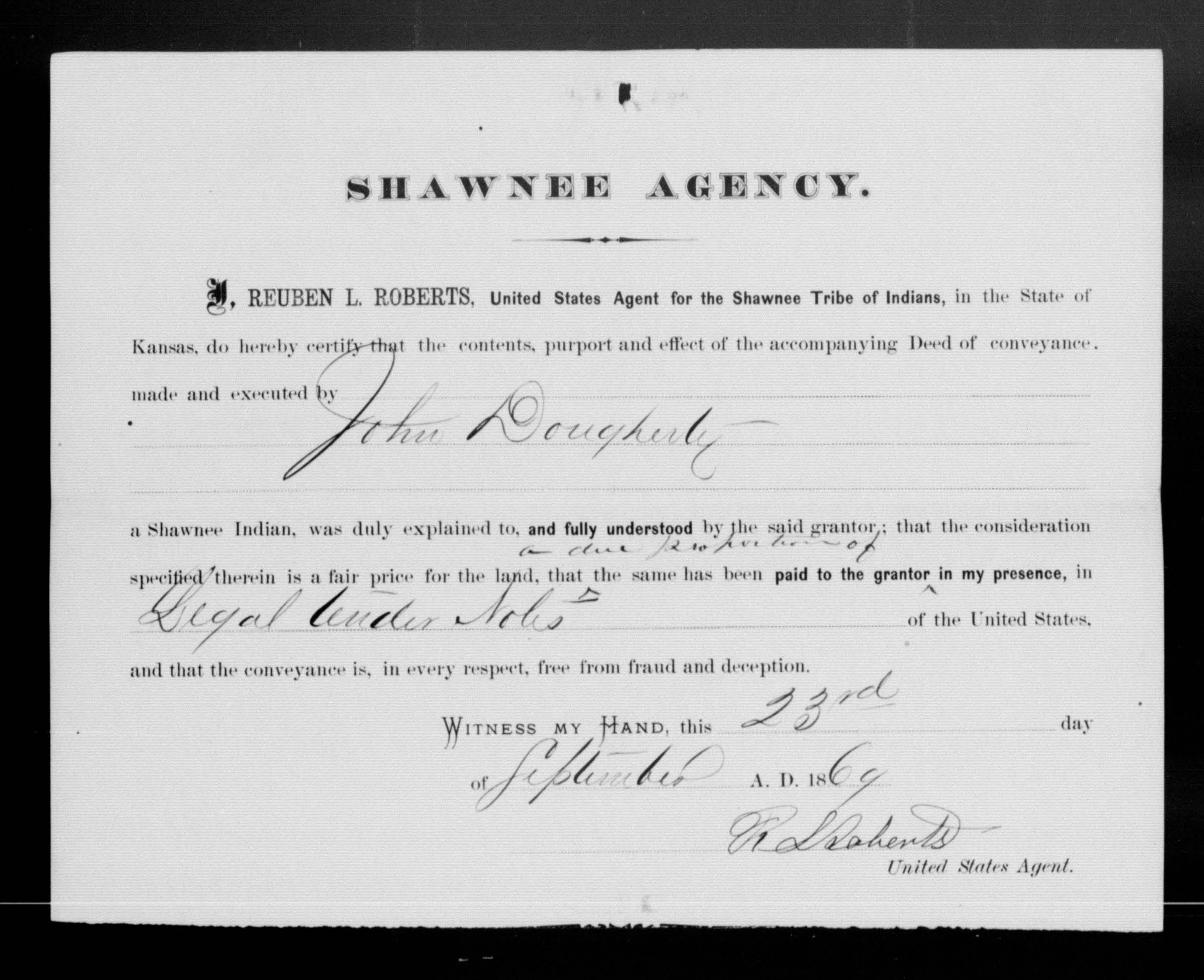 SHAWNEE AGENCY.
I, REUBEN L. ROBERTS, United States Agent for the Shawnee Tribe of Indians, in the State of
Kansas, do hereby certify that the contents, purport and effect of the accompanying Deed of conveyance.
made and executed by
John Dougherty
a Shawnee Indian, was duly explained to, and fully understood by the said grantor,; that the consideration
a due proportion of
specified therein is a fair price for the land, that the same has been paid to the grantor ^ in my presence, in
Legal tender Notes of the United States,
and that the conveyance is, in every respect, free from fraud and deception.
WITNESS MY HAND, this 23rd day
of September A. D. 1869
R L Roberts
United States Agent.